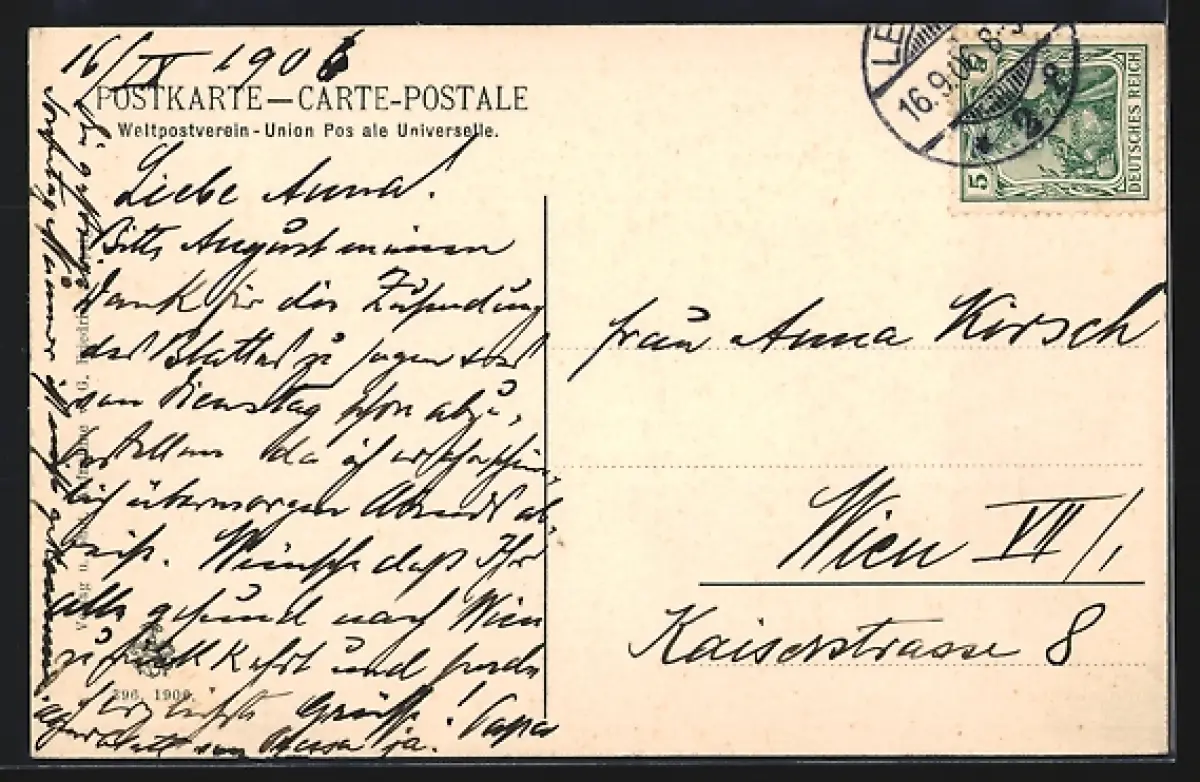 16/IX 1906
POSTKARTE—CARTE-POSTALE
Weltpostverein-Union Pos ale Universelle.
Liebe Anna!
Bitte August meinen
Dank für die Zusendung
des Blattes zu sagen u. es
von Dienstag schon abzu-
bestellen da ich wahrschein-
lich übermorgen Abends ab-
reise. Wünsche dass Ihr
alle gesund nach Wien
zurückkehrt und sende
herzlichste Grüsse! Papa
ja.
396. 1906.
LE
16.9.06. 8-9
* 2 g
5
DEUTSCHES REICH
Frau Anna Kirsch
Wien VII/1
Kaiserstrasse 8